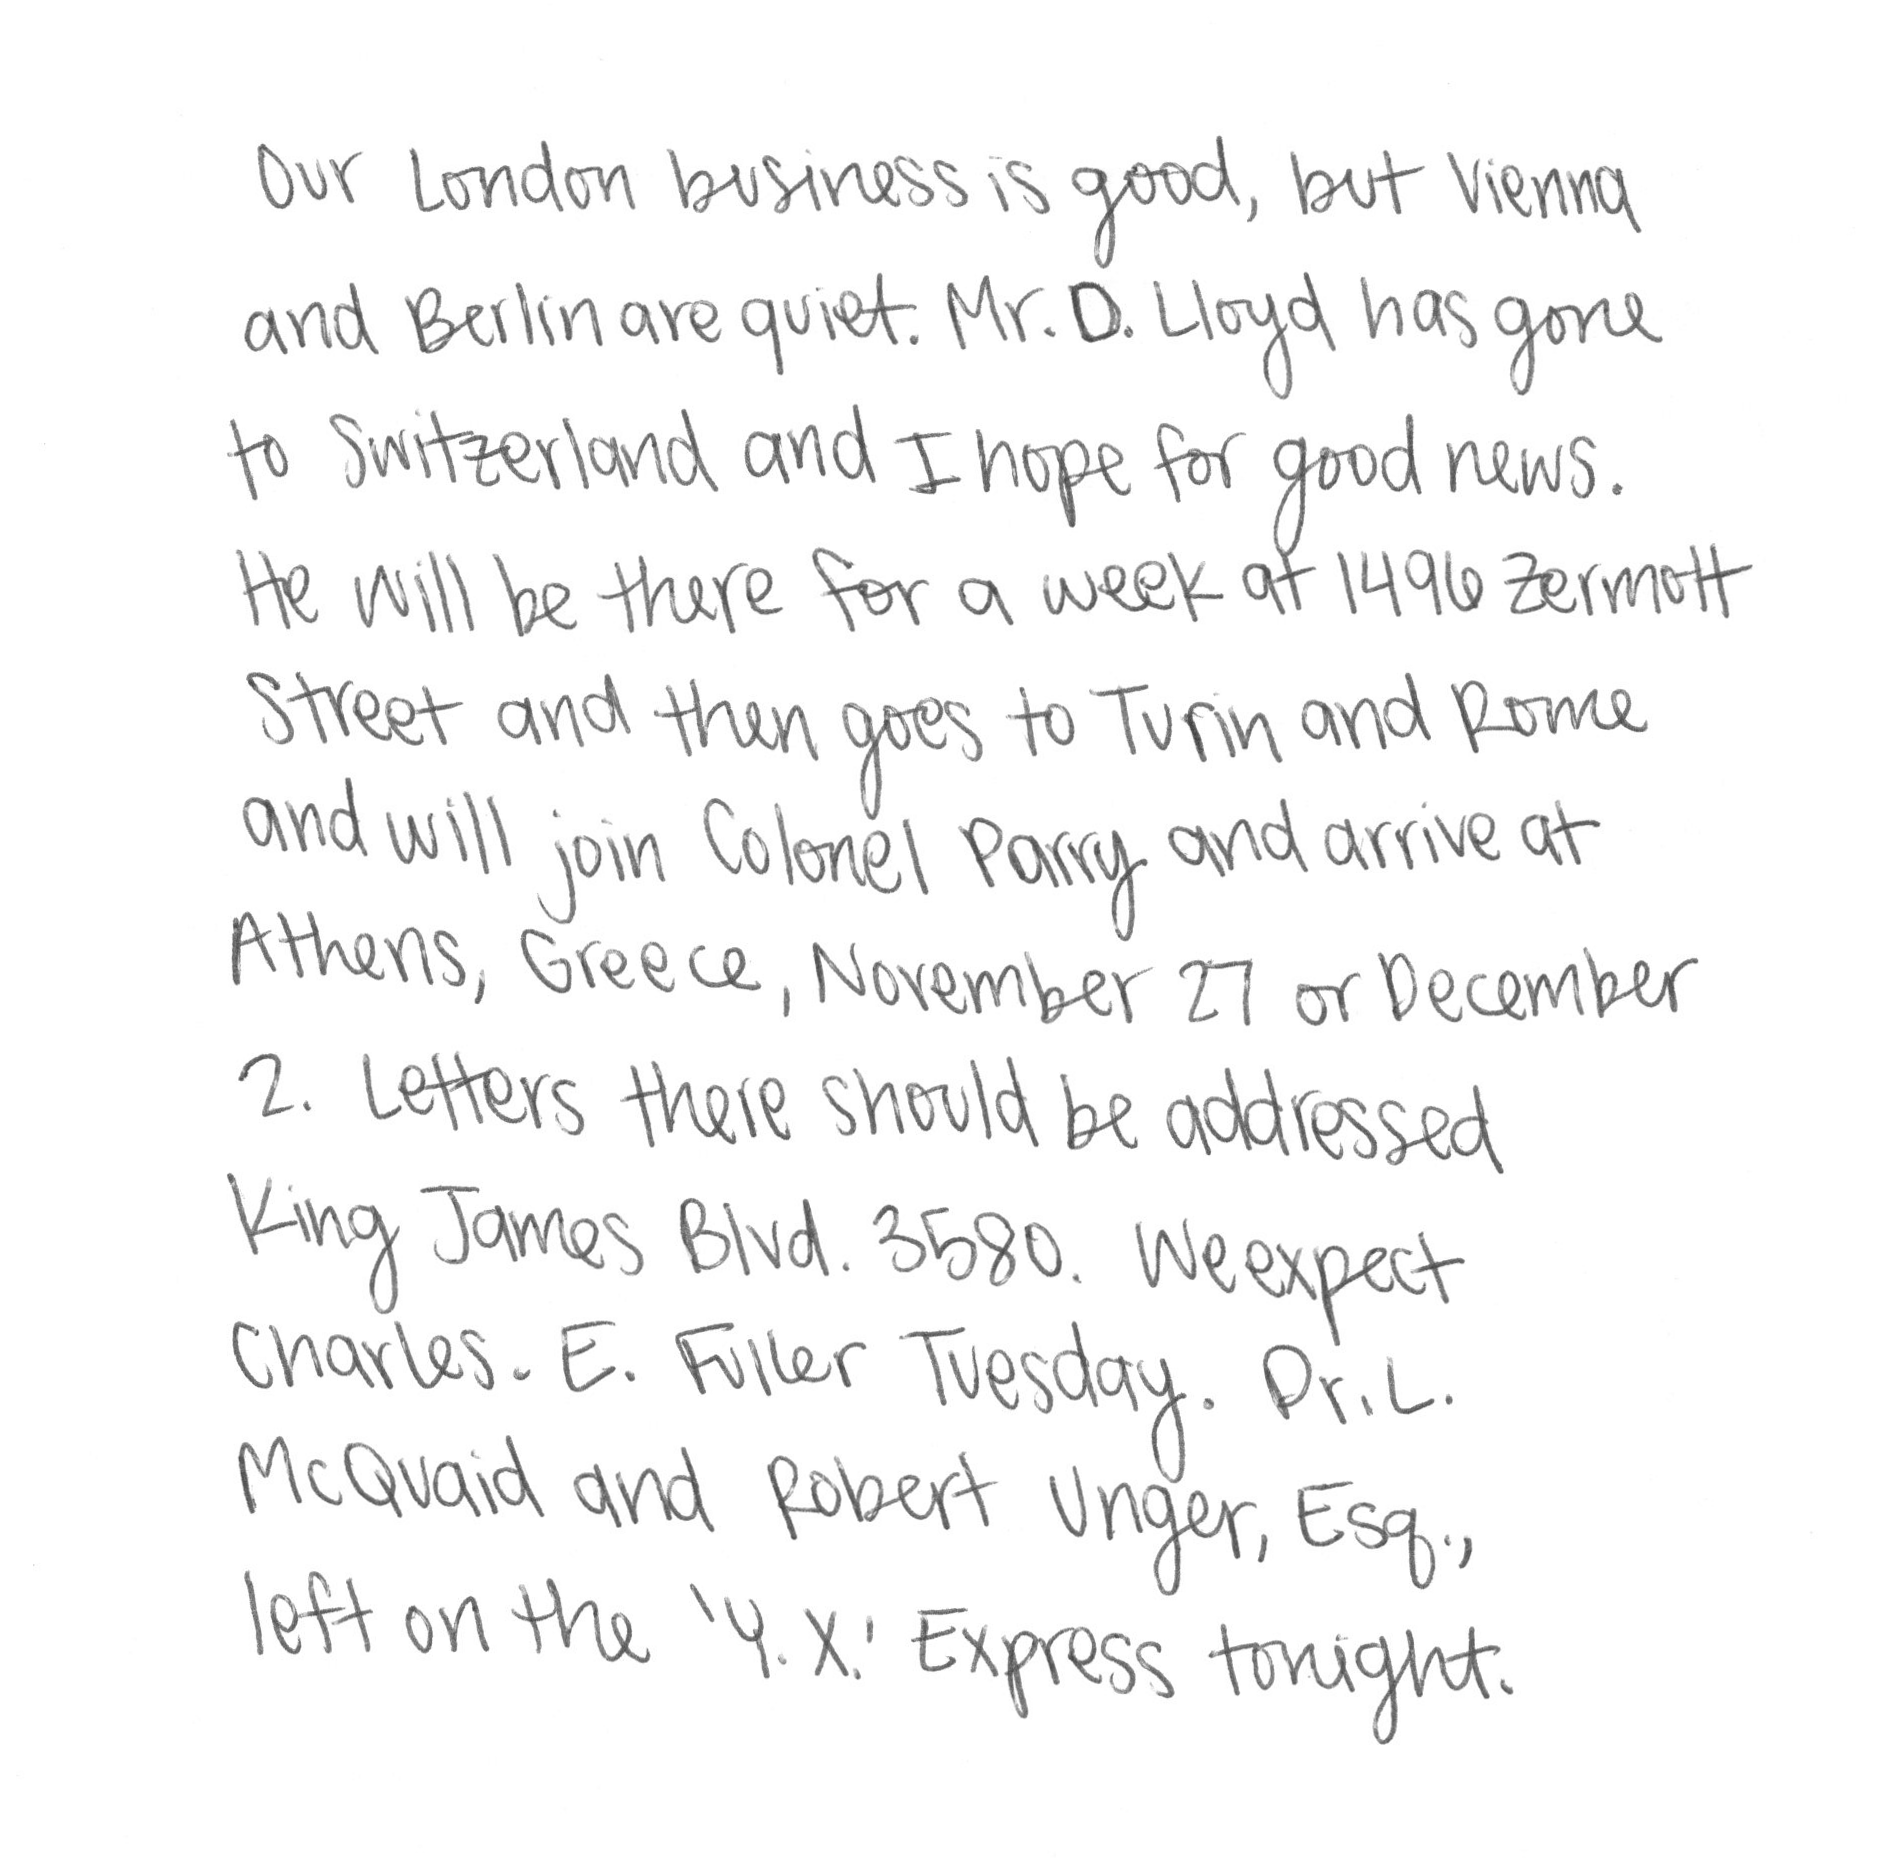 Our London business is good, but Vienna
and Berlin are quiet. Mr. D. Lloyd has gone
to Switzerland and I hope for good news.
He will be there for a week at 1496 Zermott
Street and then goes to Turin and Rome
and will join Colonel Parry and arrive at
Athens, Greece, November 27 or December
2. Letters there should be addressed
King James Blvd. 3580. We expect
Charles. E. Fuller Tuesday. Dr. L.
McQuaid and Robert Unger, Esq.,
left on the 'Y. X.' Express tonight.